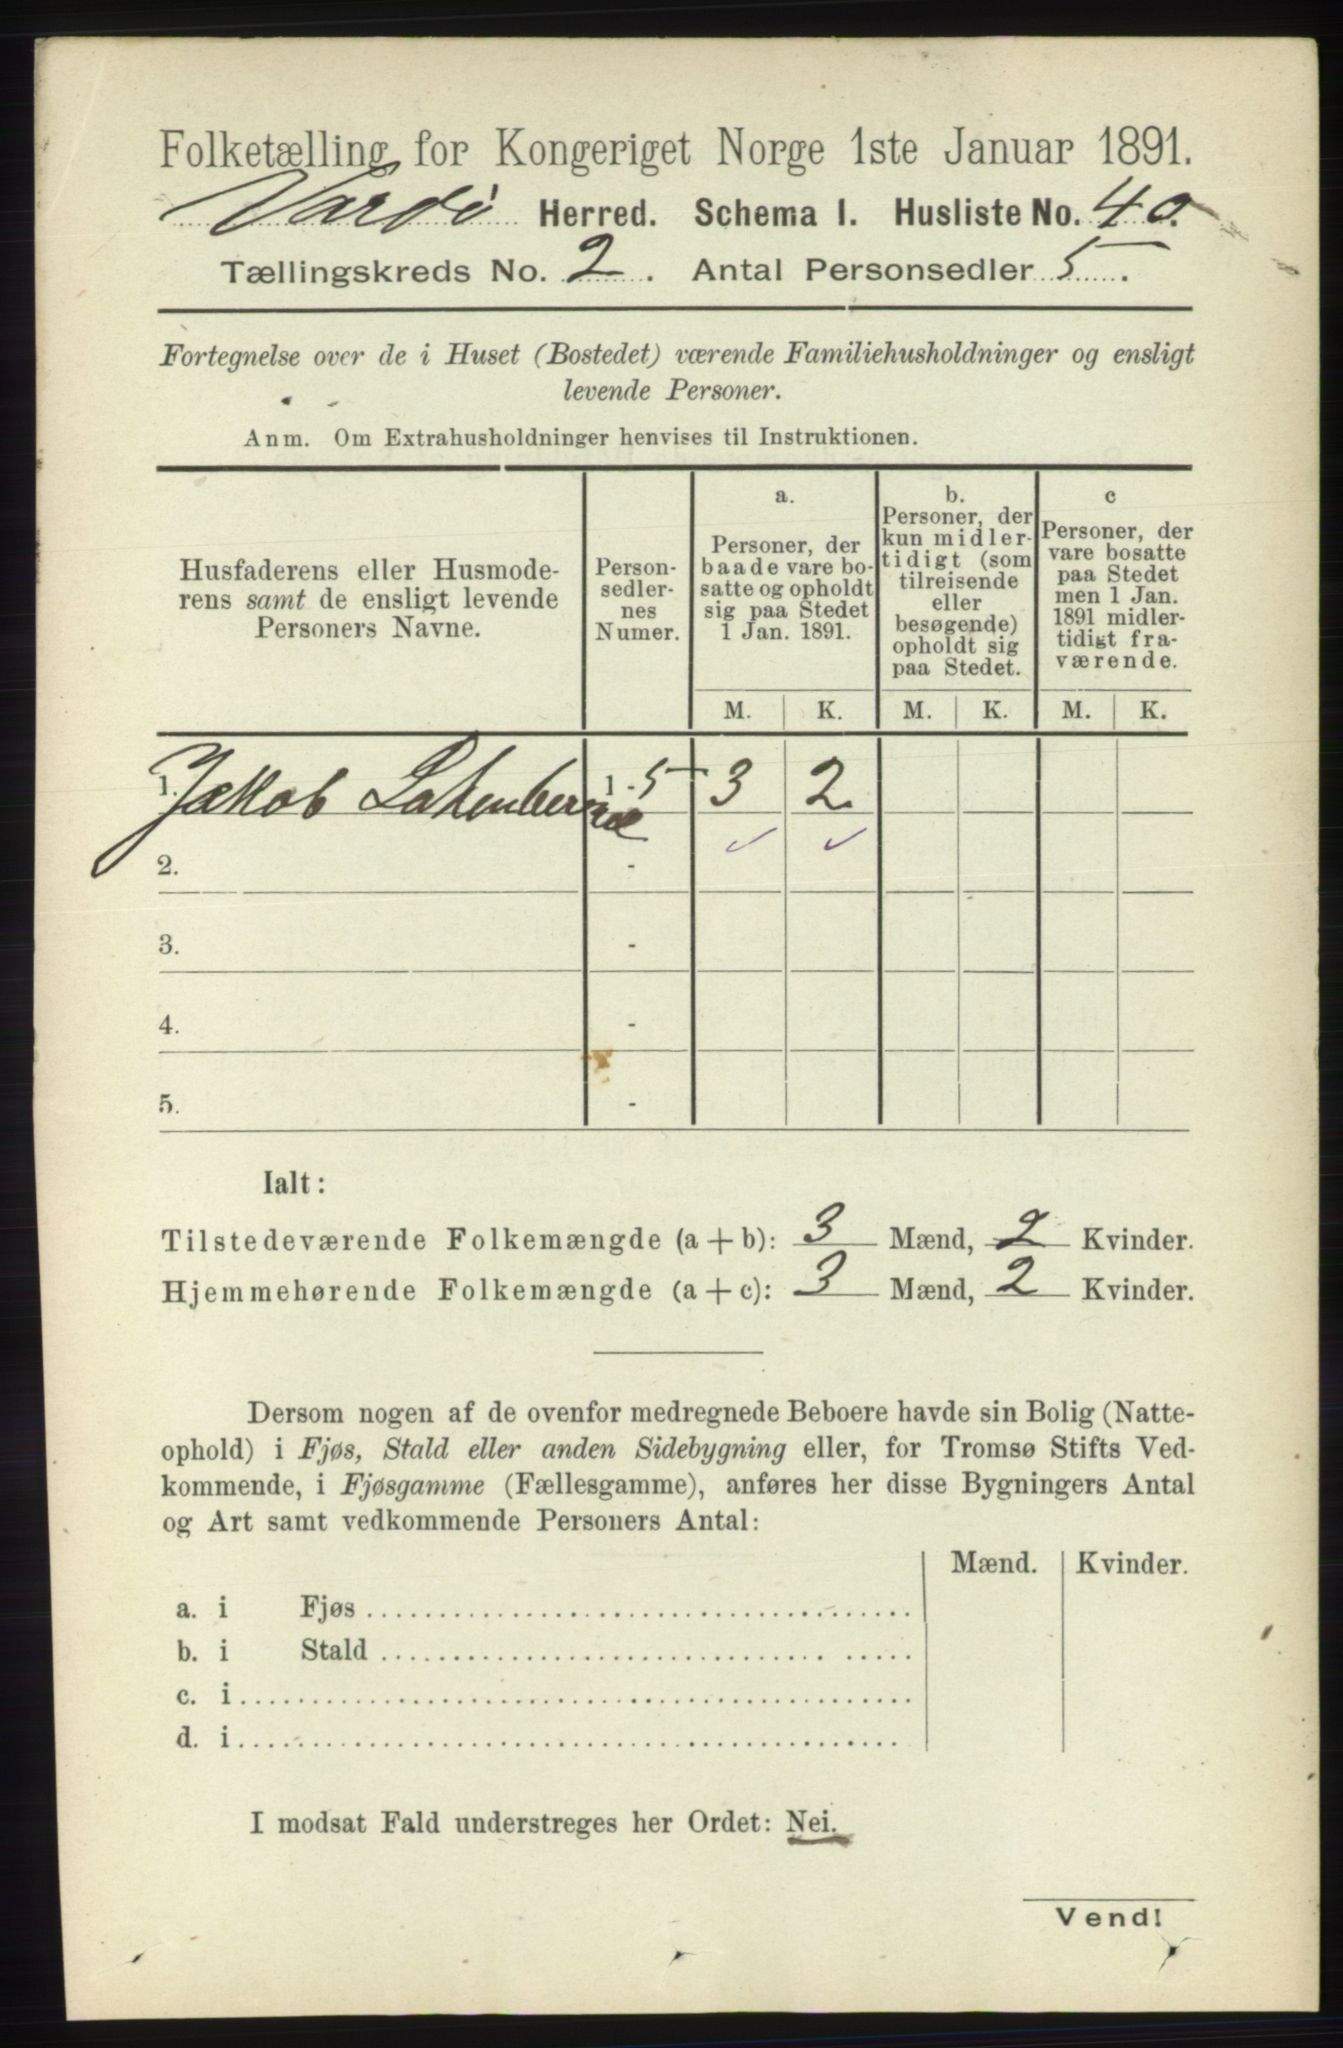 Folketælling for Kongeriget Norge 1ste Januar 1891.
Vardø Herred. Schema I. Husliste No. 40.
Tællingskreds No. 2. Antal Personsedler 5.
Fortegnelse over de i Huset (Bostedet) værende Familiehusholdninger og ensligt
levende Personer.
Anm. Om Extrahusholdninger henvises til Instruktionen.
Husfaderens eller Husmode-
rens samt de ensligt levende
Personers Navne.
Person-
sedler-
nes
Numer.
a.
Personer, der
baade vare bo-
satte og opholdt
sig paa Stedet
1 Jan. 1891.
b.
Personer, der
kun midler-
tidigt (som
tilreisende
eller
besøgende)
opholdt sig
paa Stedet.
c
Personer, der
vare bosatte
paa Stedet
men 1 Jan.
1891 midler-
tidigt fra-
værende.
M. K. M. K. M. K.
1. Jakob 1-5 3 2
2. -
3. -
4. -
5. -
Ialt:
Tilstedeværende Folkemængde (a + b): 3 Mænd, 2 Kvinder.
Hjemmehørende Folkemængde (a + c): 3 Mænd, 2 Kvinder.
Dersom nogen af de ovenfor medregnede Beboere havde sin Bolig (Natte-
ophold) i Fjøs, Stald eller anden Sidebygning eller, for Tromsø Stifts Ved-
kommende, i Fjøsgamme (Fællesgamme), anføres her disse Bygningers Antal
og Art samt vedkommende Personers Antal:
Mænd. Kvinder.
a. i Fjøs
b. i Stald
c. i
d. i
I modsat Fald understreges her Ordet: Nei.
Vend!